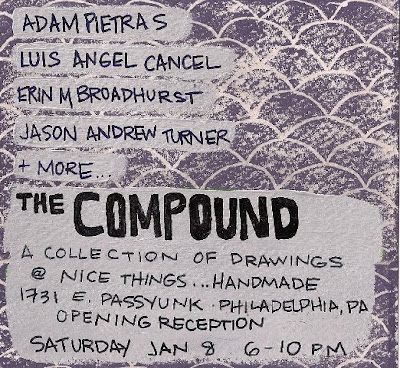 ADAM PIETRAS
LUIS ANGEL CANCEL
ERIN M BROADHURST
JASON ANDREW TURNER
+ MORE...
THE COMPOUND
A COLLECTION OF DRAWINGS
@ NICE THINGS...HANDMADE
1731 E. PASSYUNK · PHILADELPHIA, PA
OPENING RECEPTION
SATURDAY JAN 8 6-10 PM